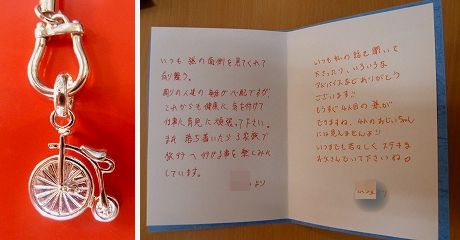 いつも孫の面倒を見てくれて
有り難う。
周りの人達の
これからも健康に気を付けて
仕事に育児に頑張って下さい。
また落ち着いたら3家族で
旅行へ行ける事を楽しみに
しています。
より
いつも私の話を聞いて
下さったり、いろいろな
アドバイスなどありがとう
ございます!!
もうすぐ4人目の孫が
できますね。4人のおじいちゃん
には見えませんよ♪
いつまでも若々しくステキな
お父さんでいて下さいね。